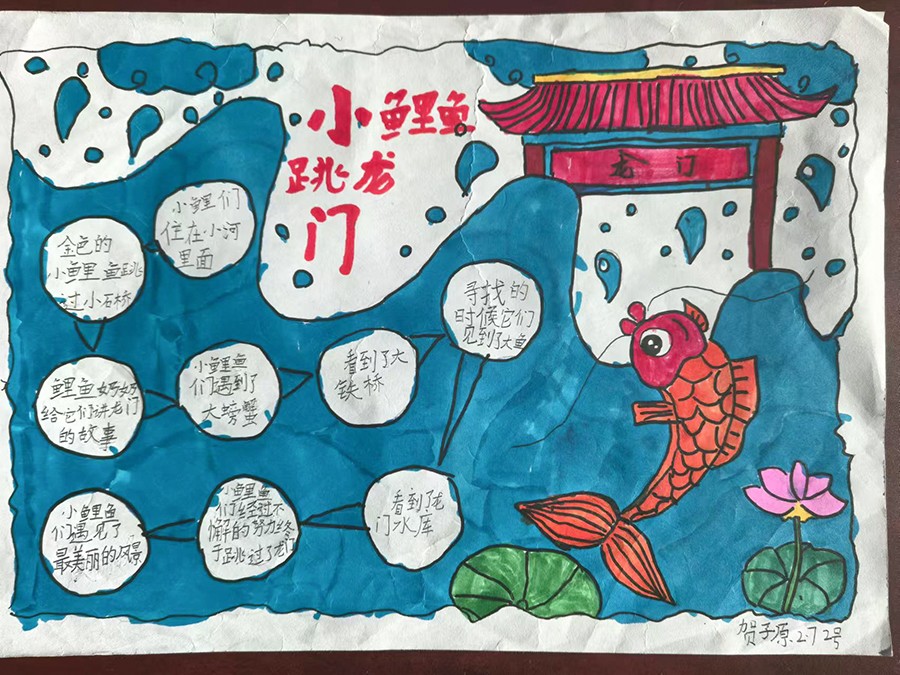 小鲤鱼
跳龙
门
龙门
小鲤们
住在小河
里面
金色的
小鲤鱼跳
过小石桥
鲤鱼奶奶
给它们讲龙门
的故事
小鲤鱼
们遇到了
大螃蟹
看到了大
铁桥
寻找的
时候它们
见到了大鱼
看到了龙
门水库
小鲤鱼
们经过不
懈的努力终
于跳过了龙门
小鲤鱼
们遇见了
最美丽的风景
贺子原.2.7 2号